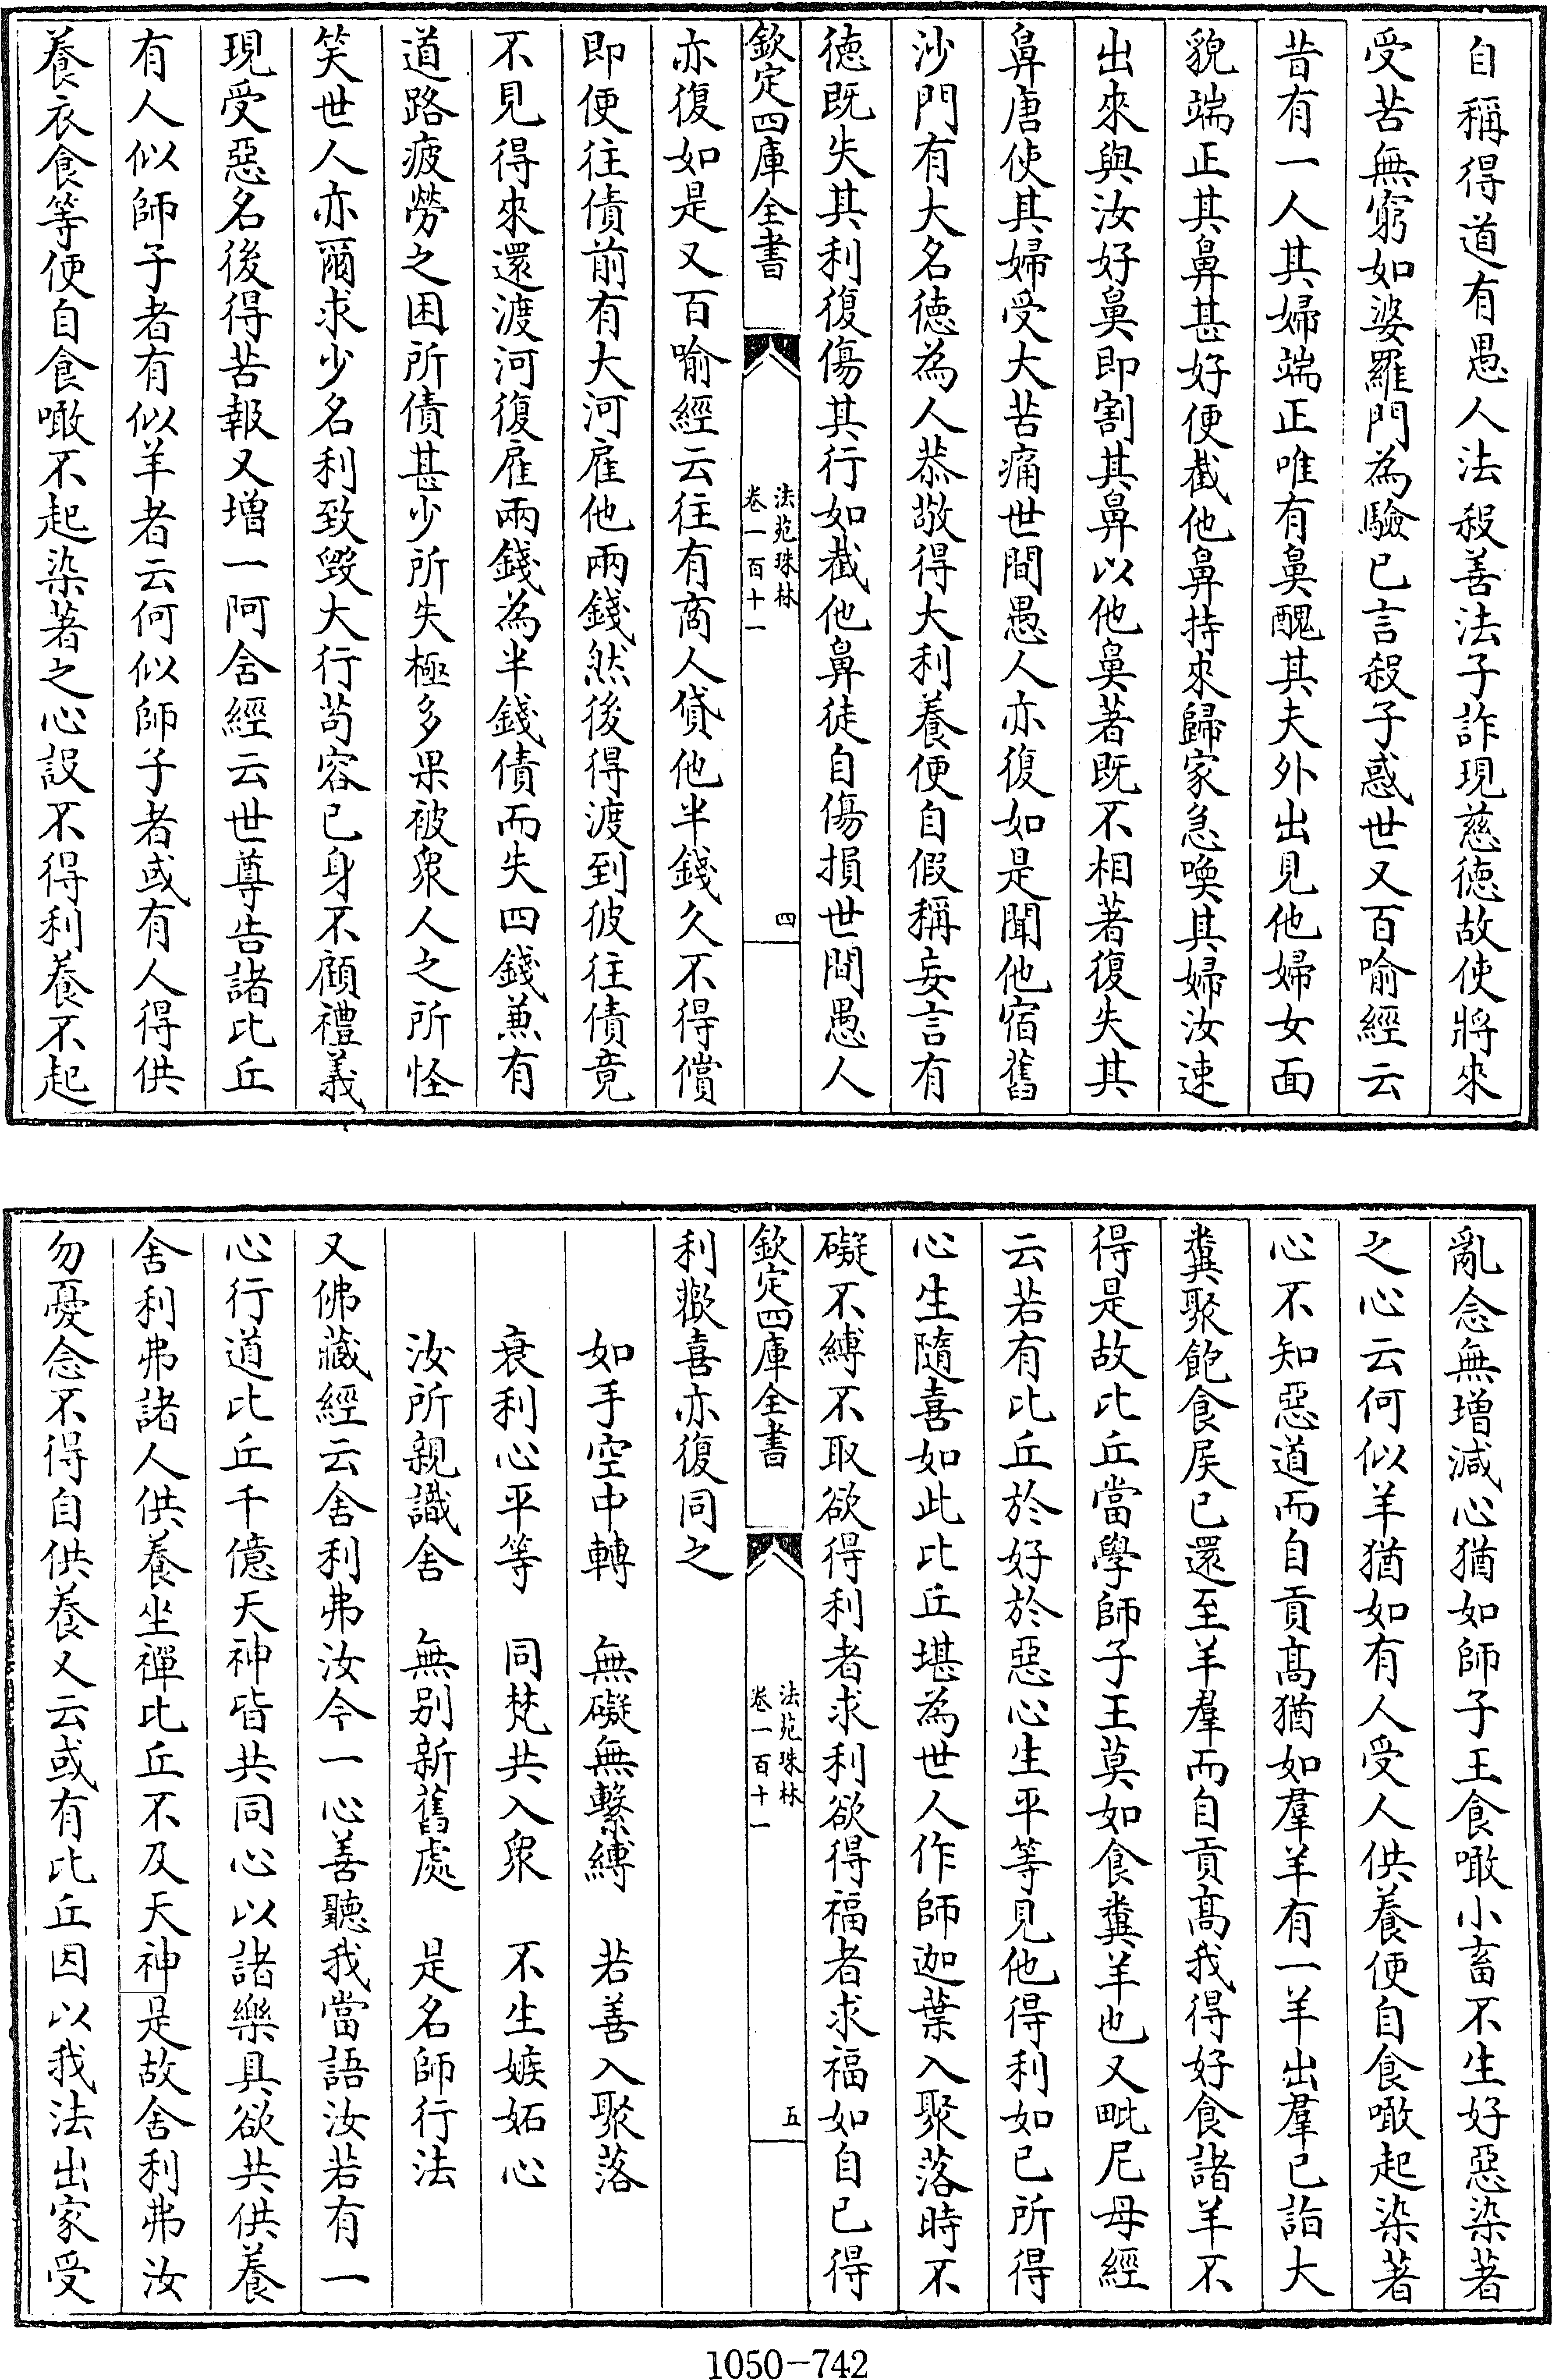 自稱得道有愚人法殺善法子詐現慈德故使將來
受苦無窮如婆羅門為驗已言殺子惑世又百喻經云
昔有一人其婦端正唯有鼻醜其夫外出見他婦女面
貌端正其鼻甚好便截他鼻持來歸家急喚其婦汝速
出來與汝好鼻即割其鼻以他鼻著既不相著復失其
鼻唐使其婦受大苦痛世間愚人亦復如是聞他宿舊
沙門有大名德為人恭敬得大利養便自假稱妄言有
德既失其利復傷其行如截他鼻徒自傷損世間愚人
欽定四庫全書
法苑珠林
卷一百十一
四
亦復如是又百喻經云往有商人貸他半錢久不得償
即便往債前有大河雇他兩錢然後得渡到彼往債竟
不見得來還渡河復雇兩錢為半錢債而失四錢兼有
道路疲勞之困所債甚少所失極多果被衆人之所怪
笑世人亦爾求少名利致毀大行苟容已身不顧禮義
現受惡名後得苦報又增一阿含經云世尊告諸比丘
有人似師子者有似羊者云何似師子者或有人得供
養衣食等便自食噉不起染著之心設不得利養不起
亂念無增減心猶如師子王食噉小畜不生好惡染著
之心云何似羊猶如有人受人供養便自食噉起染著
心不知惡道而自貢高猶如羣羊有一羊出羣已詣大
糞聚飽食屎已還至羊羣而自貢高我得好食諸羊不
得是故比丘當學師子王莫如食糞羊也又毗尼母經
云若有比丘於好於惡心生平等見他得利如已所得
心生隨喜如此比丘堪為世人作師迦葉入聚落時不
礙不縛不取欲得利者求利欲得福者求福如自已得
欽定四庫全書
法苑珠林
卷一百十一
五
利歡喜亦復同之
如手空中轉　無礙無繫縛　若善入聚落
衰利心平等　同梵共入衆　不生嫉妬心
汝所親識舍　無别新舊處　是名師行法
又佛藏經云舍利弗汝今一心善聽我當語汝若有一
心行道比丘千億天神皆共同心以諸樂具欲共供養
舍利弗諸人供養坐禪比丘不及天神是故舍利弗汝
勿憂念不得自供養又云或有比丘因以我法出家受
1050-742